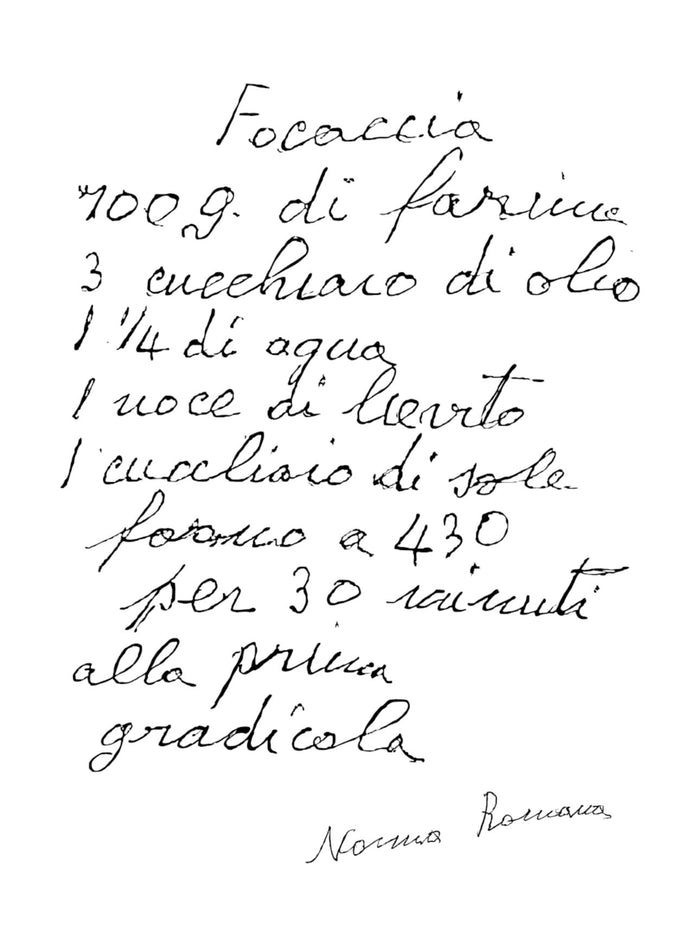 Focaccia
700 g. di farina
3 cucchiaio di olio
1 1/4 di agua
1 noce di lievito
1 cucchiaio di sole
forno a 430
per 30 minuti
alla prima
gradicola
Nonna Romana